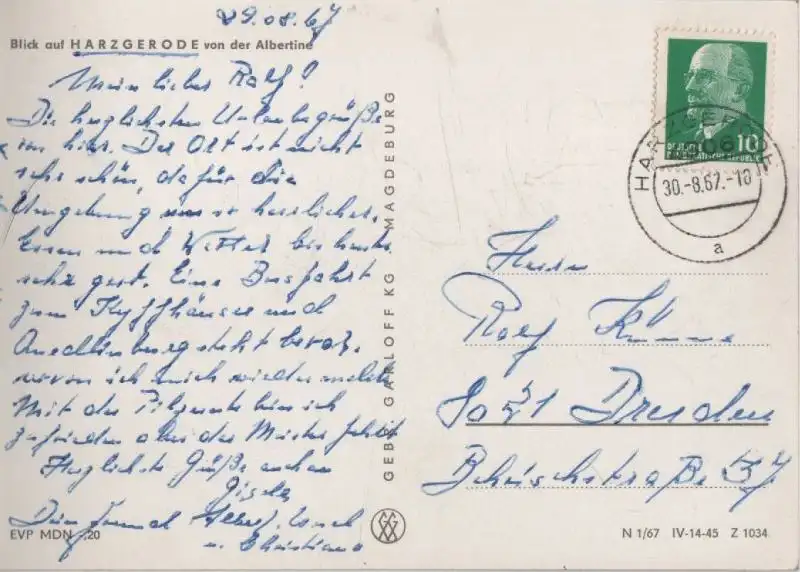 29.08.67
Blick auf HARZGERODE von der Albertine
Mein lieber Ralf!
Die herzlichsten Urlaubsgrüße
von hier. Der Ort ist nicht
sehr schön, dafür die
Umgebung um so herrlicher.
Essen und Wetter bis heute
sehr gut. Eine Busfahrt
zum Kyffhäuser und
Quedlinburg steht bevor,
wovon ich mich wieder melde.
Mit der Pilzernte bin ich
zufrieden aber das Meiste fehlt
Herzlichste Grüße auch an
Gisela
Dein Freund
u. Christiane
EVP MDN -,20
GEBR. GARLOFF KG MAGDEBURG
10
DEUTSCHE
DEMOKRATISCHE REPUBLIK
HARZGERODE
30.-8.67.-18
a
Herrn
Ralf
8021 Dresden
N 1/67 IV-14-45 Z 1034